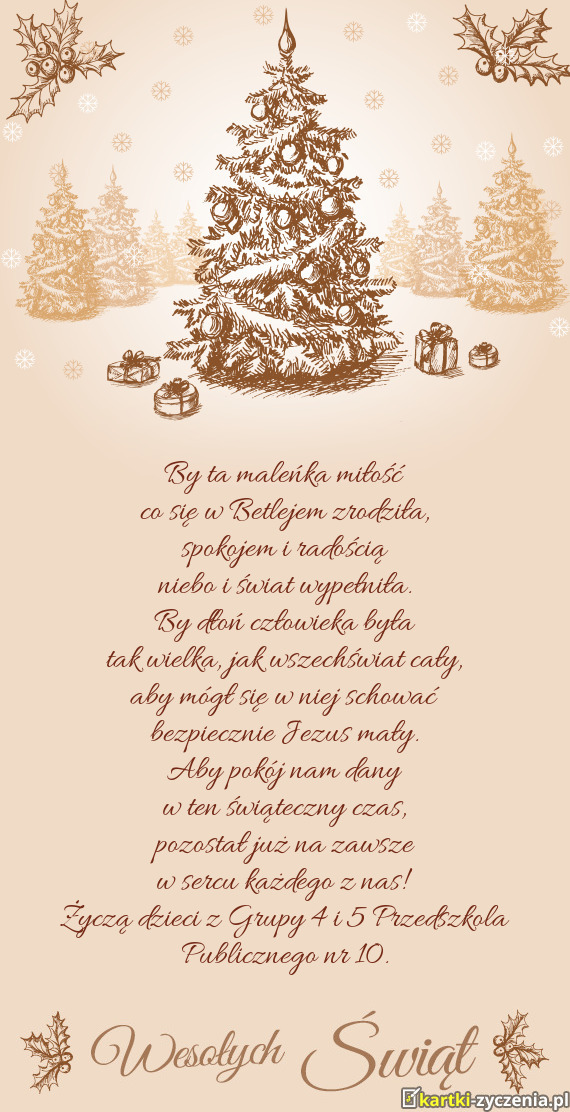 By ta maleńka miłość
co się w Betlejem zrodziła,
spokojem i radością
niebo i świat wypełniła.
By dłoń człowieka była
tak wielka, jak wszechświat cały,
aby mógł się w niej schować
bezpiecznie Jezus mały.
Aby pokój nam dany
w ten świąteczny czas,
pozostał już na zawsze
w sercu każdego z nas!
Życzą dzieci z Grupy 4 i 5 Przedszkola
Publicznego nr 10.
Wesołych Świąt
kartki-zyczenia.pl